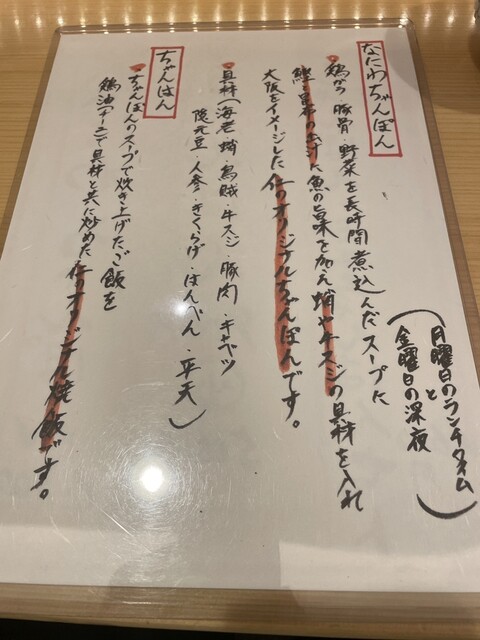 なにわちゃんぽん
(月曜日のランチタイム
と
金曜日の深夜)
鶏がら 豚骨・野菜を長時間煮込んだスープに
鰹と昆布の出汁と魚の旨味を加え蛸や牛スジの具材を入れ
大阪をイメージした仁のオリジナルちゃんぽんです。
具材(海老・蛸・烏賊・牛スジ・豚肉・キャベツ
隠元豆・人参・きくらげ・はんぺん・平天)
ちゃんはん
ちゃんぽんのスープで炊き上げたご飯を
鶏油(チーユ)で具材と共に炒めた仁のオリジナル焼飯です。